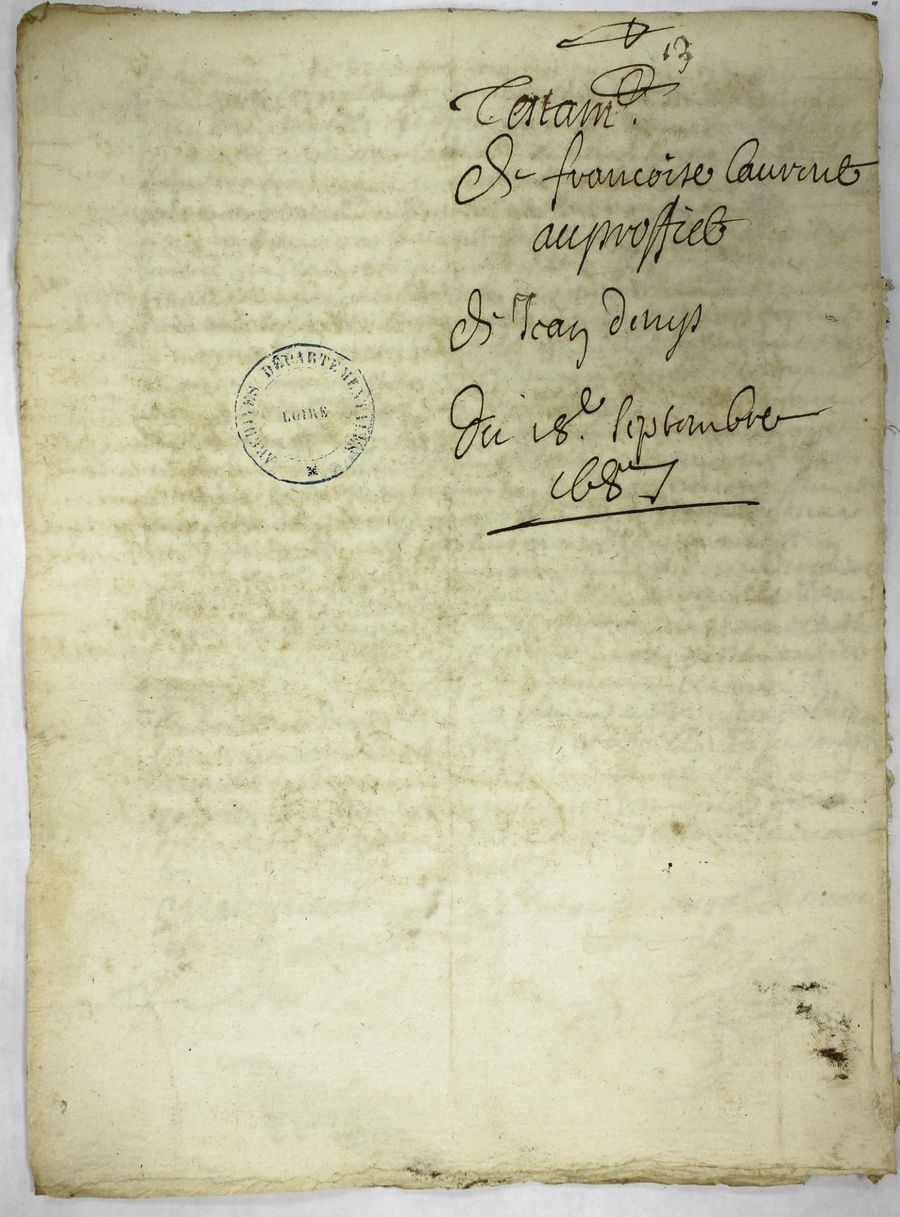 13
Testamt.
de francoise Laurent
au proffict
de Jean denys
Du 18e. Septembre
1687
ARCHIVES DÉPARTEMENTALES
LOIRE